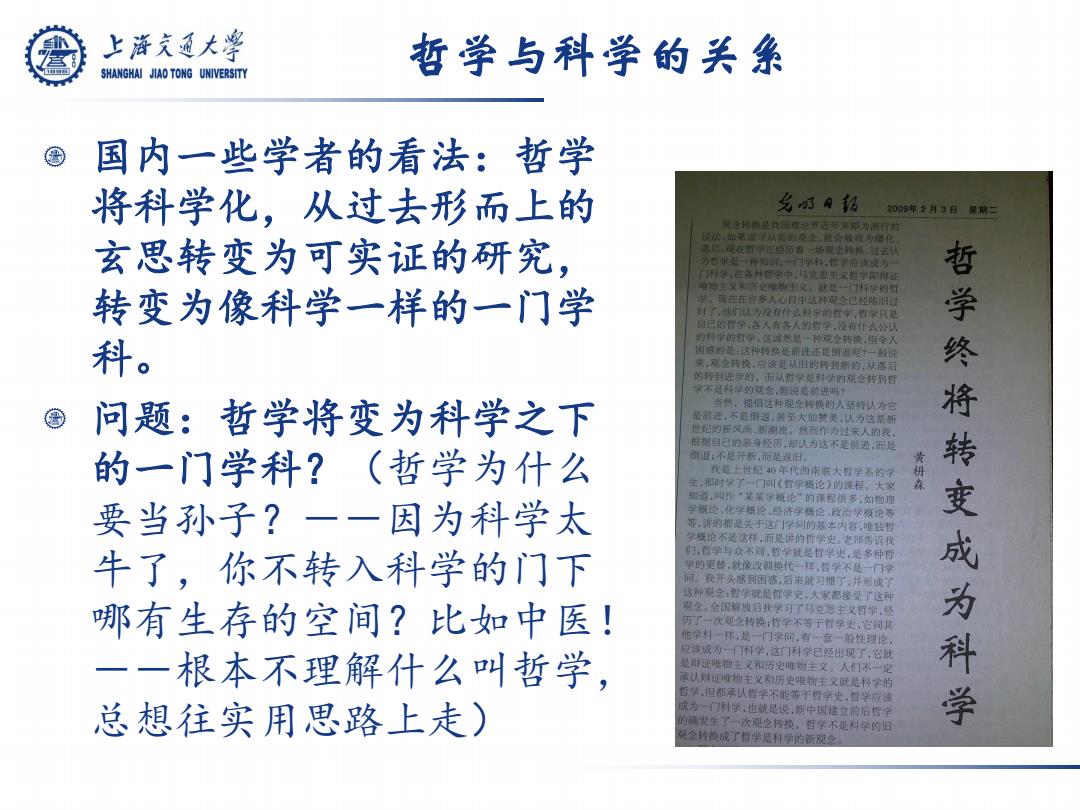 上海交通大學
SHANGHAI JIAO TONG UNIVERSITY
1896
哲学与科学的关系
国内一些学者的看法：哲学
将科学化，从过去形而上的
玄思转变为可实证的研究，
转变为像科学一样的一门学
科。
问题：哲学将变为科学之下
的一门学科？（哲学为什么
要当孙子？－－因为科学太
牛了，你不转入科学的门下
哪有生存的空间？比如中医！
－－根本不理解什么叫哲学，
总想往实用思路上走）
光明日报
2009年2月3日 星期二
哲学终将转变成为科学
黄枬森
观念转换是我国理论界近年来颇为流行的
说法,如果固守从前的观念,就会被视为僵化、
落后,现在哲学正经历着一场观念转换。过去认
为哲学是一种知识,一门学科,哲学应该成为一
门科学,在各种哲学中,马克思主义哲学即辩证
唯物主义和历史唯物主义、就是一门科学的哲
学。现在在许多人心目中这种观念已经陈旧过
时了,他们认为没有什么科学的哲学,哲学只是
自己的哲学,各人有各人的哲学,没有什么公认
的科学的哲学。这诚然是一种观念转换,但令人
困惑的是:这种转换是前进还是倒退呢?一般说
来,观念转换,应该是从旧的转到新的,从落后
的转到进步的，而从哲学是科学的观念转到哲
学不是科学的观念,能说是前进吗?
当然，提倡这种观念转换的人坚持认为它
是前进,不是倒退,甚至大加赞美,认为这是新
世纪的新风尚、新潮流。然而作为过来人的我,
根据自己的亲身经历,却认为这不是前进,而是
倒退;不是开新,而是返旧。
我是上世纪40年代西南联大哲学系的学
生,那时学了一门叫《哲学概论》的课程。大家
知道,叫作“某某学概论”的课程很多,如物理
学概论、化学概论、经济学概论、政治学概论等
等,讲的都是关于这门学问的基本内容,唯独哲
学概论不是这样,而是讲的哲学史。老师告诉我
们,哲学与众不同,哲学就是哲学史,是多种哲
学的更替,就像改朝换代一样,哲学不是一门学
问。我开头感到困惑,后来就习惯了,并形成了
这种观念:哲学就是哲学史。大家都接受了这种
观念。全国解放后我学习了马克思主义哲学,经
历了一次观念转换:哲学不等于哲学史,它同其
他学科一样,是一门学问,有一套一般性理论,
应该成为一门科学,这门科学已经出现了,它就
是辩证唯物主义和历史唯物主义。人们不一定
承认辩证唯物主义和历史唯物主义就是科学的
哲学,但都承认哲学不能等于哲学史,哲学应该
成为一门科学,也就是说,新中国建立前后哲学
的确发生了一次观念转换，哲学不是科学的旧
观念转换成了哲学是科学的新观念。